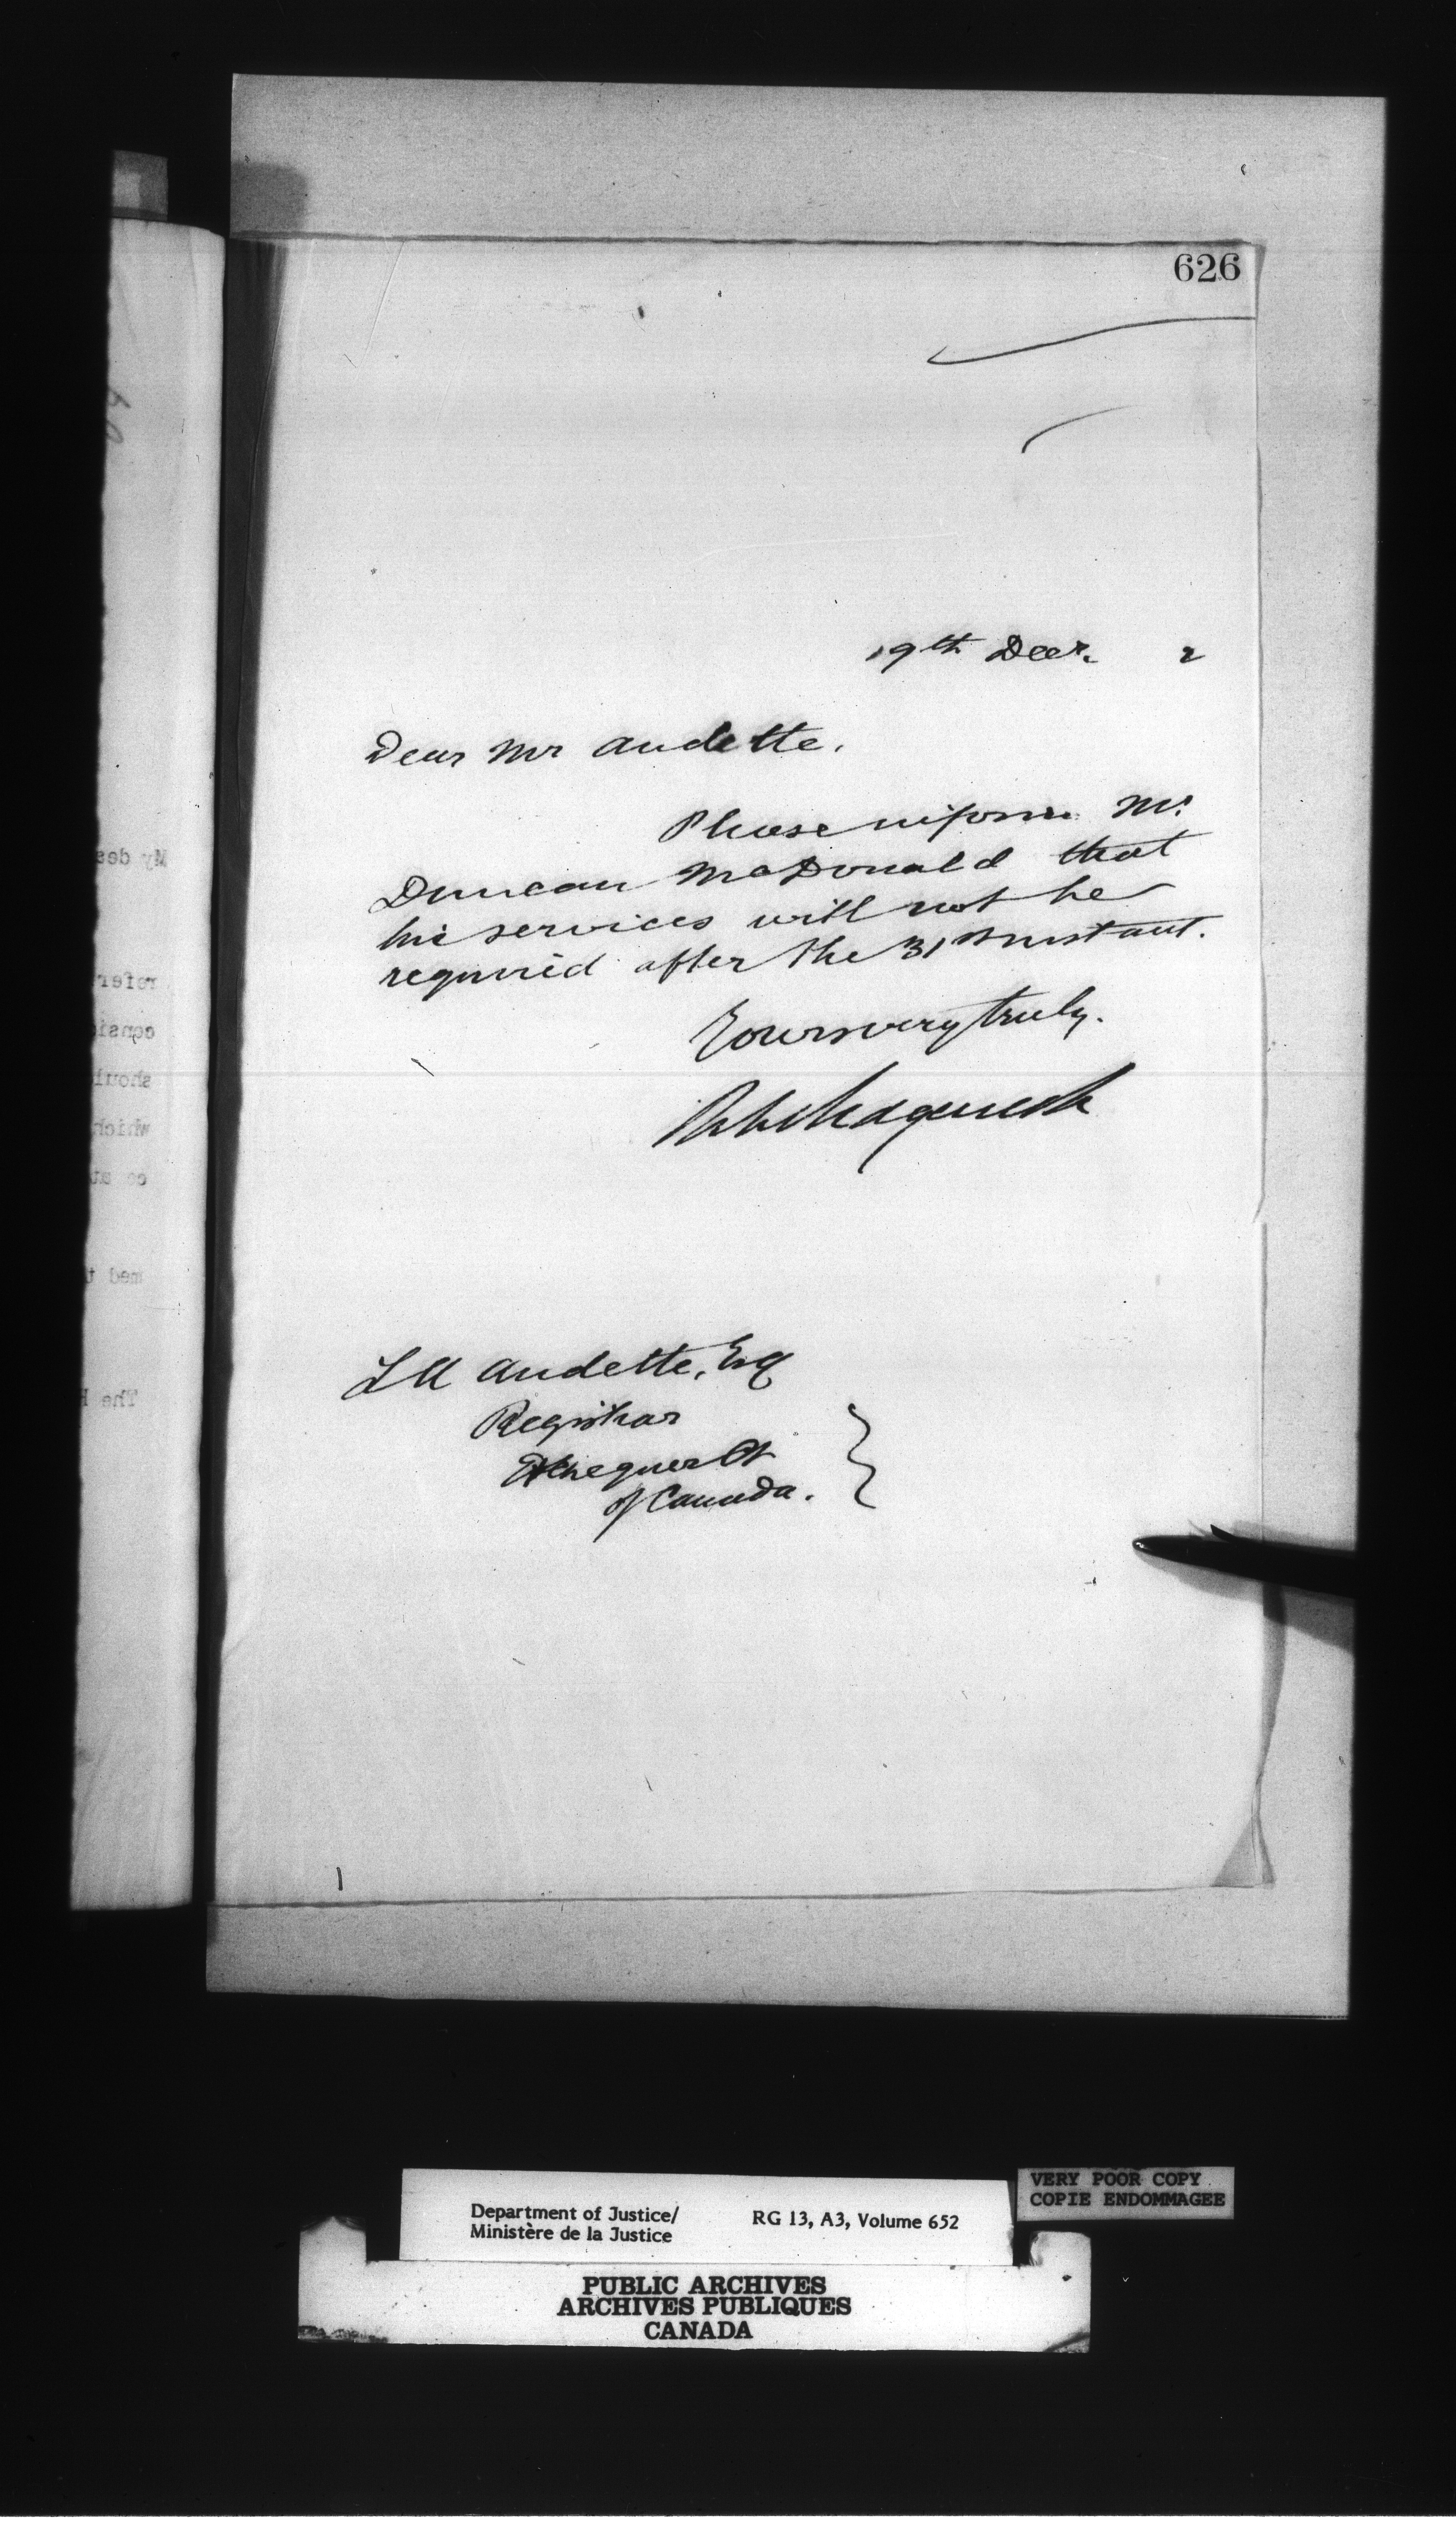 626
19th Decr. 2
Dear Mr Audette.
Please inform Mr
Duncan McDonald that
his services will not be
required after the 31st instant.
Yours very truly.
L A Audette, Esq
Registrar
Exchequer Ct
of Canada.
My des
refer
consid
shoul
which
co au
med t
The H
Department of Justice/
Ministère de la Justice
RG 13, A3, Volume 652
VERY POOR COPY
COPIE ENDOMMAGEE
PUBLIC ARCHIVES
ARCHIVES PUBLIQUES
CANADA